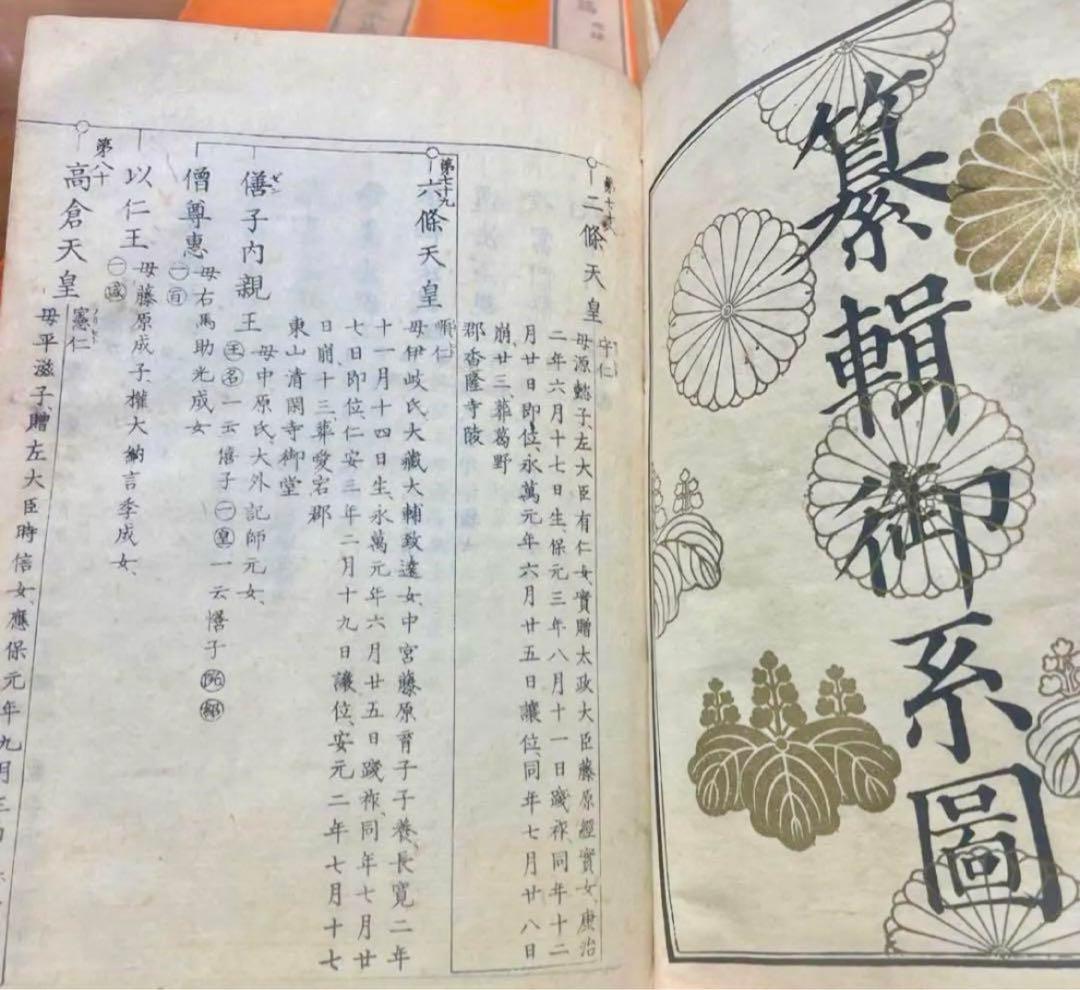 纂輯御系圖
第七十八
二條天皇
守仁
母源懿子、左大臣有仁女、實贈太政大臣藤原經實女、康治
二年六月十七日生、保元三年八月十一日踐祚、同年十二
月廿日即位、永萬元年六月廿五日讓位、同年七月廿八日
崩、廿三、葬葛野
郡香隆寺陵
第七十九
六條天皇
順仁
母伊岐氏、大藏大輔致遠女、中宮藤原育子子養、長寬二年
十一月十四日生、永萬元年六月廿五日踐祚、同年七月廿
七日即位、仁安三年二月十九日讓位、安元二年七月十七
日崩、十三、葬愛宕郡
東山清閑寺御堂
僐子內親王
母中原氏、大外記師元女、
王名一云僖子一皇一云
僧尊惠
母右馬助光成女
以仁王
母藤原成子、權大納言季成女、
第八十
高倉天皇
憲仁
母平滋子、贈左大臣時信女、應保元年九月三